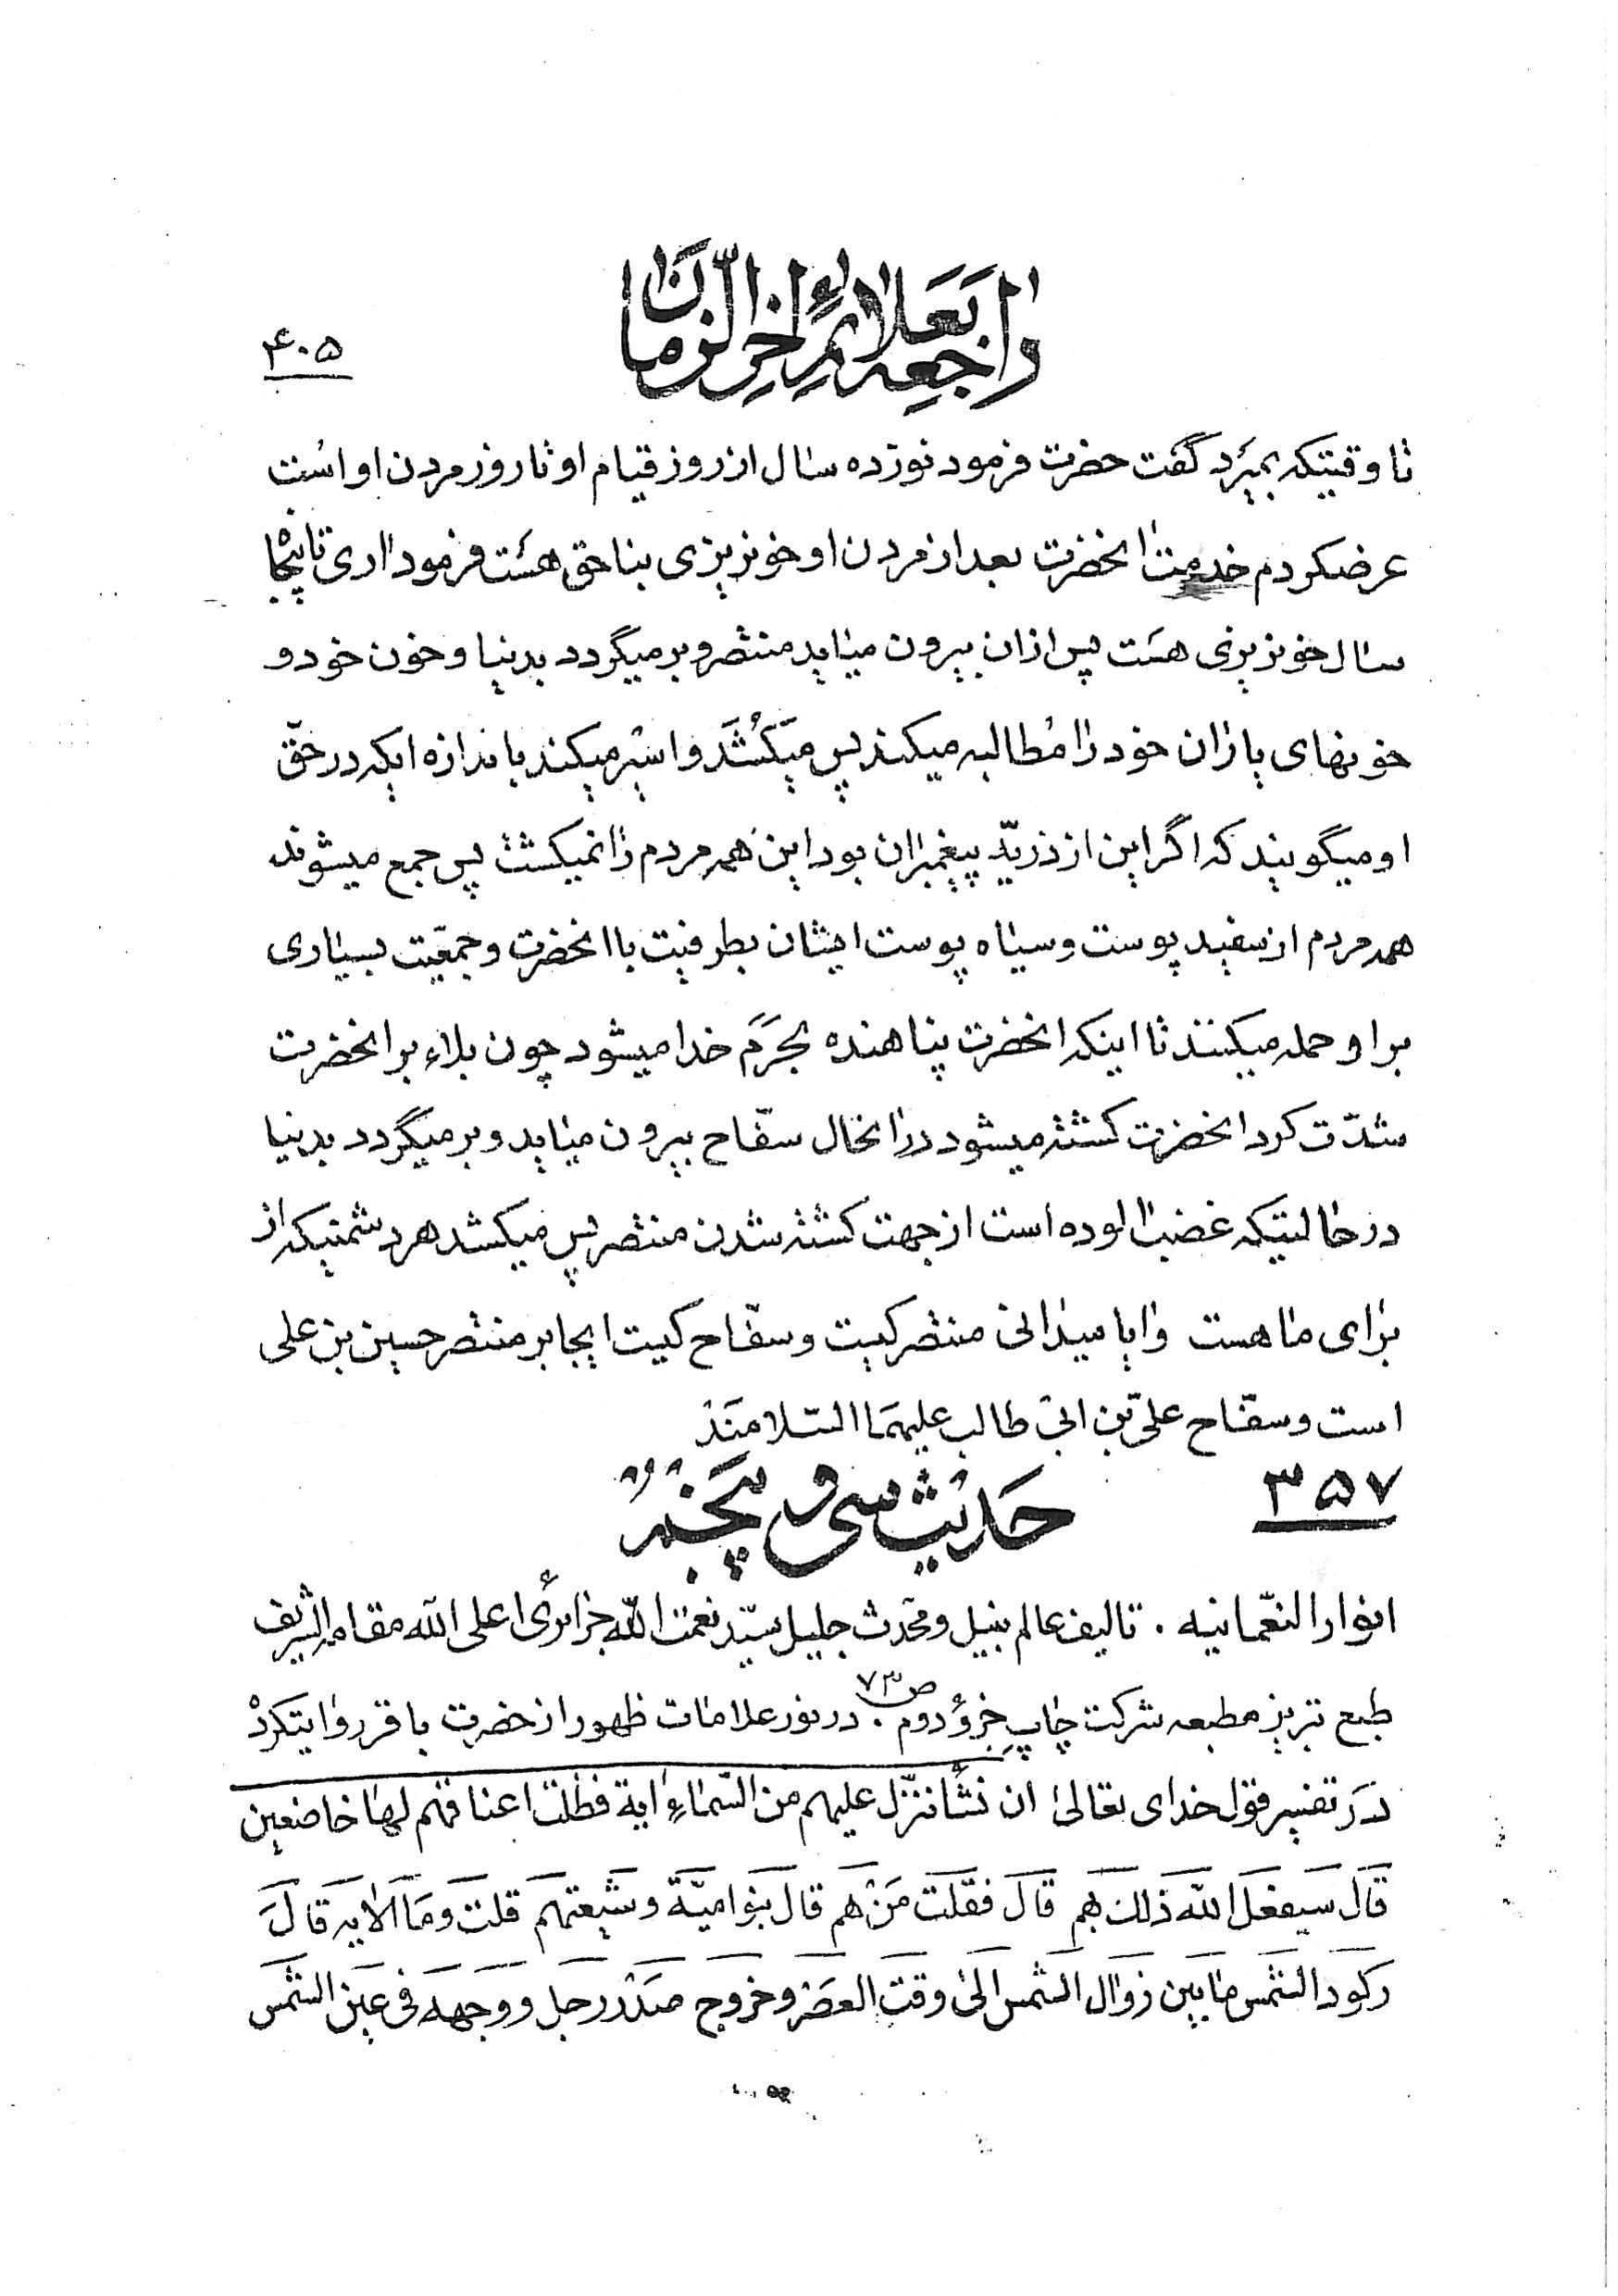 راجعه بعلائم اخر الزمان
۴۰۵
تا وقتیکه بمیرد گفت حضرت فرمود نوزده سال از روز قیام او تا روز مردن او است
عرضکردم خدمت انحضرت بعد از مردن او خونریزی بناحق هست فرمود اری تا پنجاه
سال خونریزی هست پس از ان بیرون میاید منتصر و برمیگردد بدنیا و خون خود و
خونهای یاران خود را مُطالبه میکند پس میَکُشَد و اسیر میکند باندازه ایکه در حقّ
او میگویند که اگر این از ذریّه پیغمبران بود این همه مردم را نمیکشت پس جمع میشوند
همه مردم از سفید پوست و سیاه پوست ایشان بطرفیت با انحضرت و جمعیّت بسیاری
بر او حمله میکنند تا اینکه انحضرت پناهنده بحَرَم خدا میشود چون بلاء بر انحضرت
شدّت کرد انحضرت کشته میشود در انحال سفّاح بیرون میاید و برمیگردد بدنیا
در حالتیکه غضب الوده است از جهت کشته شدن منتصر پس میکشد هر دشمنیکه از
برای ما هست وایا میدانی منتصر کیست و سفّاح کیست ایجابر منتصر حسین بن علی
است و سفّاح علیّ بن ابی طالب علیهما السّلامند
۳۵۷
حدیث سی و پنجم
انوار النعّمانیه . تالیف عالم نبیل و محدّث جلیل سیّد نعمت اللّه جزائری اعلی الله مقامه الشریف
طبع تبریز مطبعه شرکت چاپ جزؤ دوم ص ۷۳ . در نور علامات ظهور از حضرت باقر روایتکرده
در تفسیر قول خدای تعالی ان نشأ ننزّل علیهم من السّماءِ ایة فظلّت اعناقهم لها خاضعین
قال سیفعل اللّه ذلک بهم قال فقلت مَنْ هم قال بنو امیّة و شیعتهم قلت و ما الایه قال
رکود الشمس ما بین زوال الشمس الی وقت العصر و خروج صدر رجل و وجهه فی عین الشمس